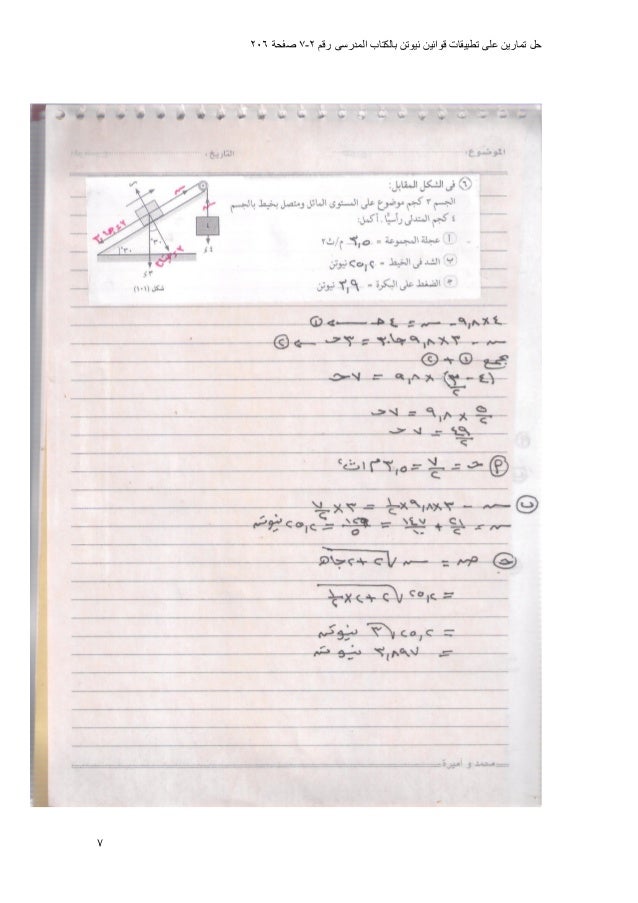 حل تمارين على تطبيقات قوانين نيوتن بالكتاب المدرسى رقم ٢-٧ صفحة ٢٠٦
الموضوع: التاريخ:
٦ فى الشكل المقابل:
الجسم ٣ كجم موضوع على المستوى المائل ومتصل بخيط بالجسم
٤ كجم المتدلى رأسيًا. أكمل:
أ عجلة المجموعة = ٣,٥ م/ث٢
ب الشد فى الخيط = ٢٥,٢ نيوتن
ج الضغط على البكرة = ٣,٩ نيوتن
٤
٤ء
٣٠°
٣٠°
٣ء
شكل (١٠١)
٤×٩,٨ - سہ = ٤حـ ← ①
سہ - ٣×٩,٨ جا٣٠ = ٣حـ ← ②
بجمع ① + ②
(٤ - ٣/٢) × ٩,٨ = ٧حـ
٥/٢ × ٩,٨ = ٧حـ
٤٩/٢ = ٧حـ
أ حـ = ٧/٢ = ٣,٥ م/ث٢
ب سہ - ٣×٩,٨×١/٢ = ٣×٧/٢
سہ = ٢١/٢ + ١٤٧/١٠ = ١٢٦/٥ = ٢٥,٢ نيوتن
ج ضہ = سہ √٢+٢جاهـ
= ٢٥,٢ √٢+٢×١/٢
= ٢٥,٢ √٣ نيوتن
= ٣,٨٩٧ نيوتن
محمد و اميرة
٧